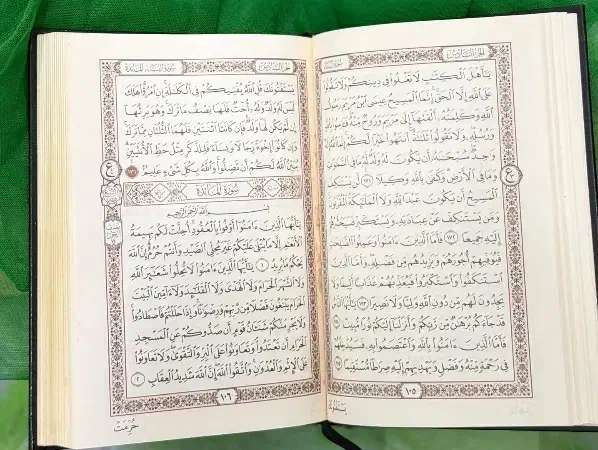 الجزء السادس
سورة النساء
يَٰٓأَهۡلَ ٱلۡكِتَٰبِ لَا تَغۡلُواْ فِي دِينِكُمۡ وَلَا تَقُولُواْ
عَلَى ٱللَّهِ إِلَّا ٱلۡحَقَّۚ إِنَّمَا ٱلۡمَسِيحُ عِيسَى ٱبۡنُ مَرۡيَمَ رَسُولُ
ٱللَّهِ وَكَلِمَتُهُۥٓ أَلۡقَىٰهَآ إِلَىٰ مَرۡيَمَ وَرُوحٞ مِّنۡهُۖ فَـَٔامِنُواْ بِٱللَّهِ
وَرُسُلِهِۦۖ وَلَا تَقُولُواْ ثَلَٰثَةٌۚ ٱنتَهُواْ خَيۡرٗا لَّكُمۡۚ إِنَّمَا ٱللَّهُ إِلَٰهٞ
وَٰحِدٞۖ سُبۡحَٰنَهُۥٓ أَن يَكُونَ لَهُۥ وَلَدٞۘ لَّهُۥ مَا فِي ٱلسَّمَٰوَٰتِ
وَمَا فِي ٱلۡأَرۡضِۗ وَكَفَىٰ بِٱللَّهِ وَكِيلٗا ١٧١ لَّن يَسۡتَنكِفَ
ٱلۡمَسِيحُ أَن يَكُونَ عَبۡدٗا لِّلَّهِ وَلَا ٱلۡمَلَٰٓئِكَةُ ٱلۡمُقَرَّبُونَۚ
وَمَن يَسۡتَنكِفۡ عَنۡ عِبَادَتِهِۦ وَيَسۡتَكۡبِرۡ فَسَيَحۡشُرُهُمۡ
إِلَيۡهِ جَمِيعٗا ١٧٢ فَأَمَّا ٱلَّذِينَ ءَامَنُواْ وَعَمِلُواْ ٱلصَّٰلِحَٰتِ
فَيُوَفِّيهِمۡ أُجُورَهُمۡ وَيَزِيدُهُم مِّن فَضۡلِهِۦۖ وَأَمَّا ٱلَّذِينَ
ٱسۡتَنكَفُواْ وَٱسۡتَكۡبَرُواْ فَيُعَذِّبُهُمۡ عَذَابًا أَلِيمٗا وَلَا
يَجِدُونَ لَهُم مِّن دُونِ ٱللَّهِ وَلِيّٗا وَلَا نَصِيرٗا ١٧٣ يَٰٓأَيُّهَا ٱلنَّاسُ
قَدۡ جَآءَكُم بُرۡهَٰنٞ مِّن رَّبِّكُمۡ وَأَنزَلۡنَآ إِلَيۡكُمۡ نُورٗا مُّبِينٗا ١٧٤
فَأَمَّا ٱلَّذِينَ ءَامَنُواْ بِٱللَّهِ وَٱعۡتَصَمُواْ بِهِۦ فَسَيُدۡخِلُهُمۡ
فِي رَحۡمَةٖ مِّنۡهُ وَفَضۡلٖ وَيَهۡدِيهِمۡ إِلَيۡهِ صِرَٰطٗا مُّسۡتَقِيمٗا ١٧٥
١٠٥
يَسۡتَفۡتُونَكَ
الجزء السادس
سورة النساء، المائدة
يَسۡتَفۡتُونَكَ قُلِ ٱللَّهُ يُفۡتِيكُمۡ فِي ٱلۡكَلَٰلَةِۚ إِنِ ٱمۡرُؤٌاْ هَلَكَ
لَيۡسَ لَهُۥ وَلَدٞ وَلَهُۥٓ أُخۡتٞ فَلَهَا نِصۡفُ مَا تَرَكَۚ وَهُوَ يَرِثُهَآ
إِن لَّمۡ يَكُن لَّهَا وَلَدٞۚ فَإِن كَانَتَا ٱثۡنَتَيۡنِ فَلَهُمَا ٱلثُّلُثَانِ مِمَّا تَرَكَۚ
وَإِن كَانُوٓاْ إِخۡوَةٗ رِّجَالٗا وَنِسَآءٗ فَلِلذَّكَرِ مِثۡلُ حَظِّ ٱلۡأُنثَيَيۡنِۗ
يُبَيِّنُ ٱللَّهُ لَكُمۡ أَن تَضِلُّواْۗ وَٱللَّهُ بِكُلِّ شَيۡءٍ عَلِيمُۢ ١٧٦
سُورَةُ المَائِدَةِ
بِسۡمِ ٱللَّهِ ٱلرَّحۡمَٰنِ ٱلرَّحِيمِ
يَٰٓأَيُّهَا ٱلَّذِينَ ءَامَنُوٓاْ أَوۡفُواْ بِٱلۡعُقُودِۚ أُحِلَّتۡ لَكُم بَهِيمَةُ
ٱلۡأَنۡعَٰمِ إِلَّا مَا يُتۡلَىٰ عَلَيۡكُمۡ غَيۡرَ مُحِلِّي ٱلصَّيۡدِ وَأَنتُمۡ حُرُمٌۗ إِنَّ ٱللَّهَ
يَحۡكُمُ مَا يُرِيدُ ١ يَٰٓأَيُّهَا ٱلَّذِينَ ءَامَنُواْ لَا تُحِلُّواْ شَعَٰٓئِرَ ٱللَّهِ
وَلَا ٱلشَّهۡرَ ٱلۡحَرَامَ وَلَا ٱلۡهَدۡيَ وَلَا ٱلۡقَلَٰٓئِدَ وَلَآ ءَآمِّينَ ٱلۡبَيۡتَ
ٱلۡحَرَامَ يَبۡتَغُونَ فَضۡلٗا مِّن رَّبِّهِمۡ وَرِضۡوَٰنٗاۚ وَإِذَا حَلَلۡتُمۡ فَٱصۡطَادُواْۚ
وَلَا يَجۡرِمَنَّكُمۡ شَنَـَٔانُ قَوۡمٍ أَن صَدُّوكُمۡ عَنِ ٱلۡمَسۡجِدِ
ٱلۡحَرَامِ أَن تَعۡتَدُواْۘ وَتَعَاوَنُواْ عَلَى ٱلۡبِرِّ وَٱلتَّقۡوَىٰۖ وَلَا تَعَاوَنُواْ
عَلَى ٱلۡإِثۡمِ وَٱلۡعُدۡوَٰنِۚ وَٱتَّقُواْ ٱللَّهَۖ إِنَّ ٱللَّهَ شَدِيدُ ٱلۡعِقَابِ ٢
١٠٦
حُرِّمَتۡ